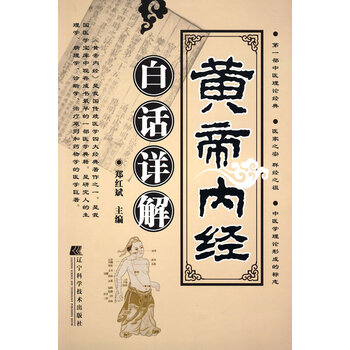 ●第一部中医理论经典 ●医家之宗 群经之祖 ●中医学理论形成的标志
黄帝内经
白话详解
●郑红斌 主编
《黄帝内经》是我国传统医学四大经典著作之一，是我
国医学宝库中现存成书最早的一部医学典籍，是研究人的生
理学、病理学、诊断学、治疗原则和药物学的医学巨著。
辽宁科学技术出版社